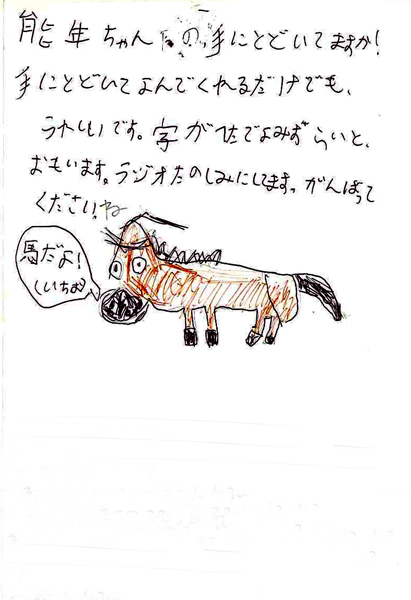 能年ちゃんたの手にとどいてますか!
手にとどいてよんでくれるだけでも、
うれしいです。字がへたでよみずらいと、
おもいます。ラジオたのしみにしてます。がんばって
くださいね
馬だよ!
(いちお)